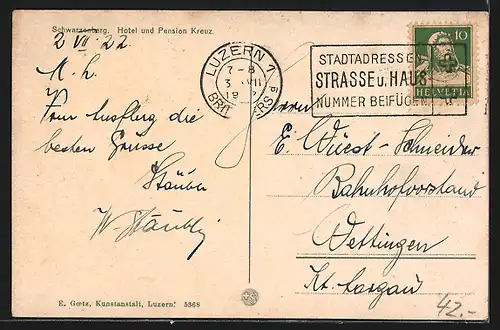 Schwarzenberg. Hotel und Pension Kreuz.
2 VII 22
M. h.
Vom Ausflug die
besten Grüsse
W. Stäubli
LUZERN 1
7-8
3 VII
19
STADTADRESSEN
STRASSE u. HAUS
NUMMER BEIFÜGEN
10
HELVETIA
Herrn
E. Wüest-Schneider
Bahnhofvorstand
Wettingen
Kt. Aargau
E. Goetz, Kunstanstalt, Luzern. 5368
42.-